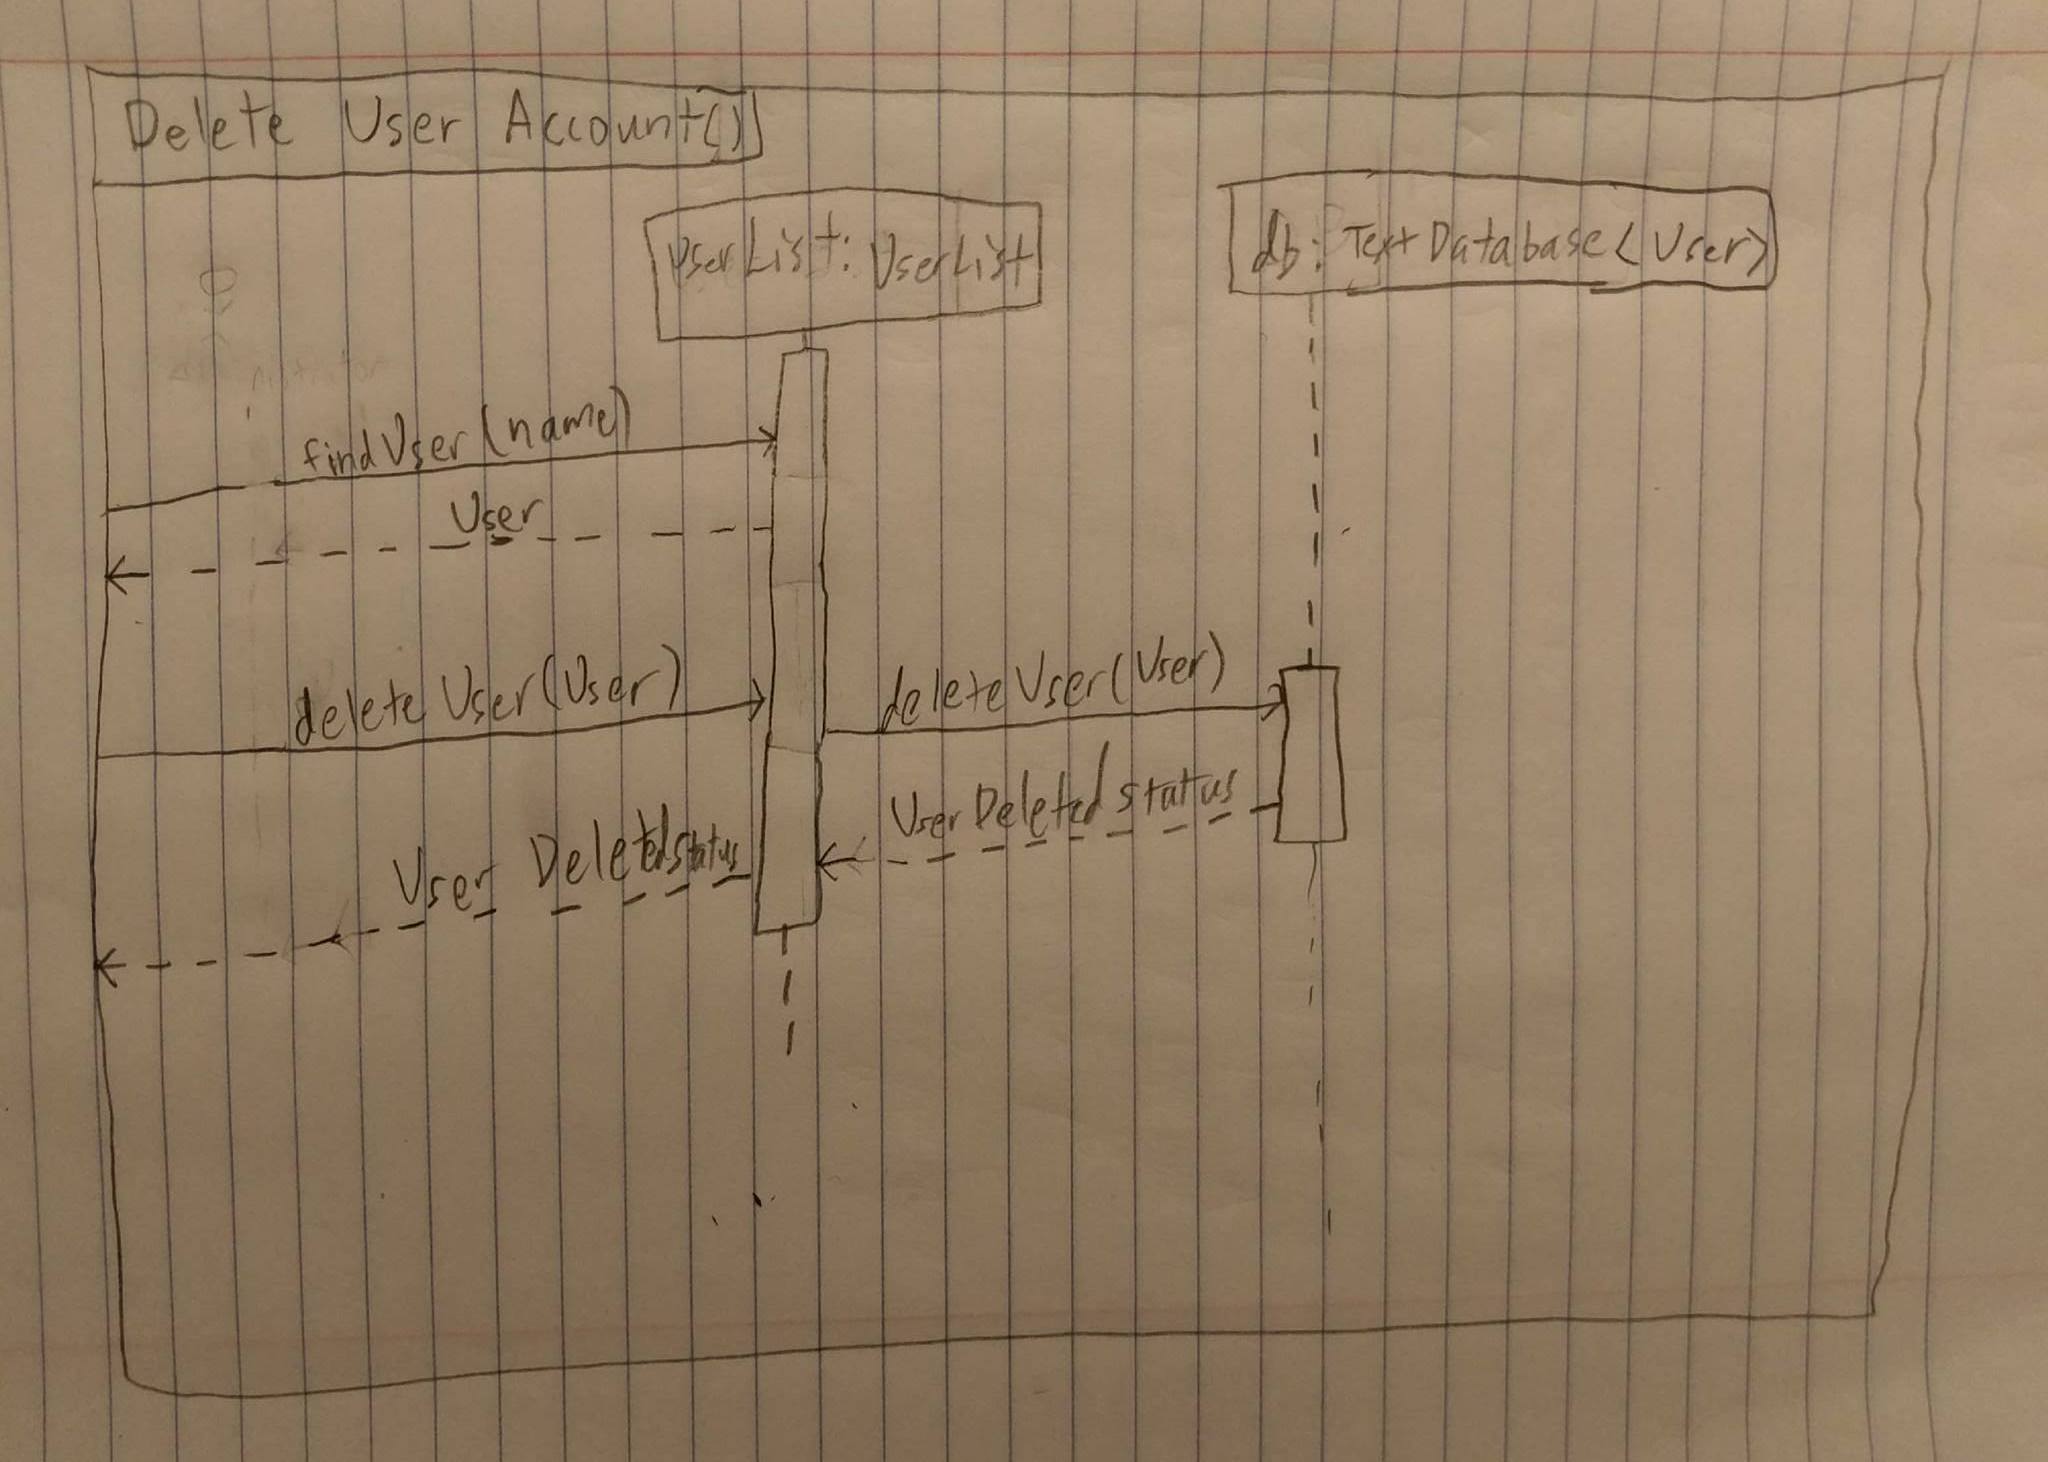 Delete User Account()
UserList: UserList
db: TextDatabase<User>
findUser(name)
User
deleteUser(User)
deleteUser(User)
UserDeleted status
User Deletedstatus